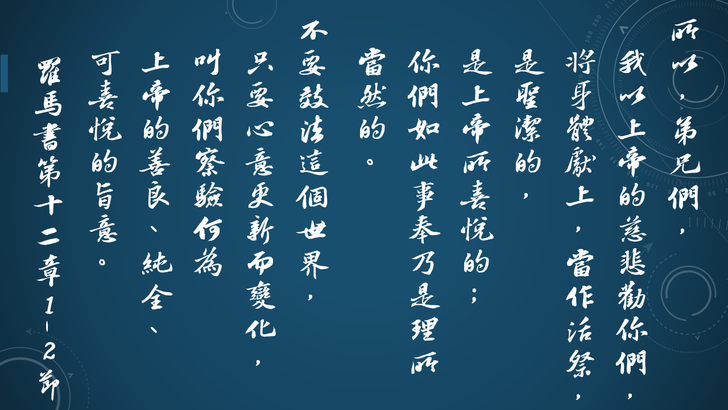 所以，弟兄們，
我以上帝的慈悲勸你們，
將身體獻上，當作活祭，
是聖潔的，
是上帝所喜悅的；
你們如此事奉乃是理所
當然的。
不要效法這個世界，
只要心意更新而變化，
叫你們察驗何為
上帝的善良、純全、
可喜悅的旨意。
羅馬書第十二章1-2節